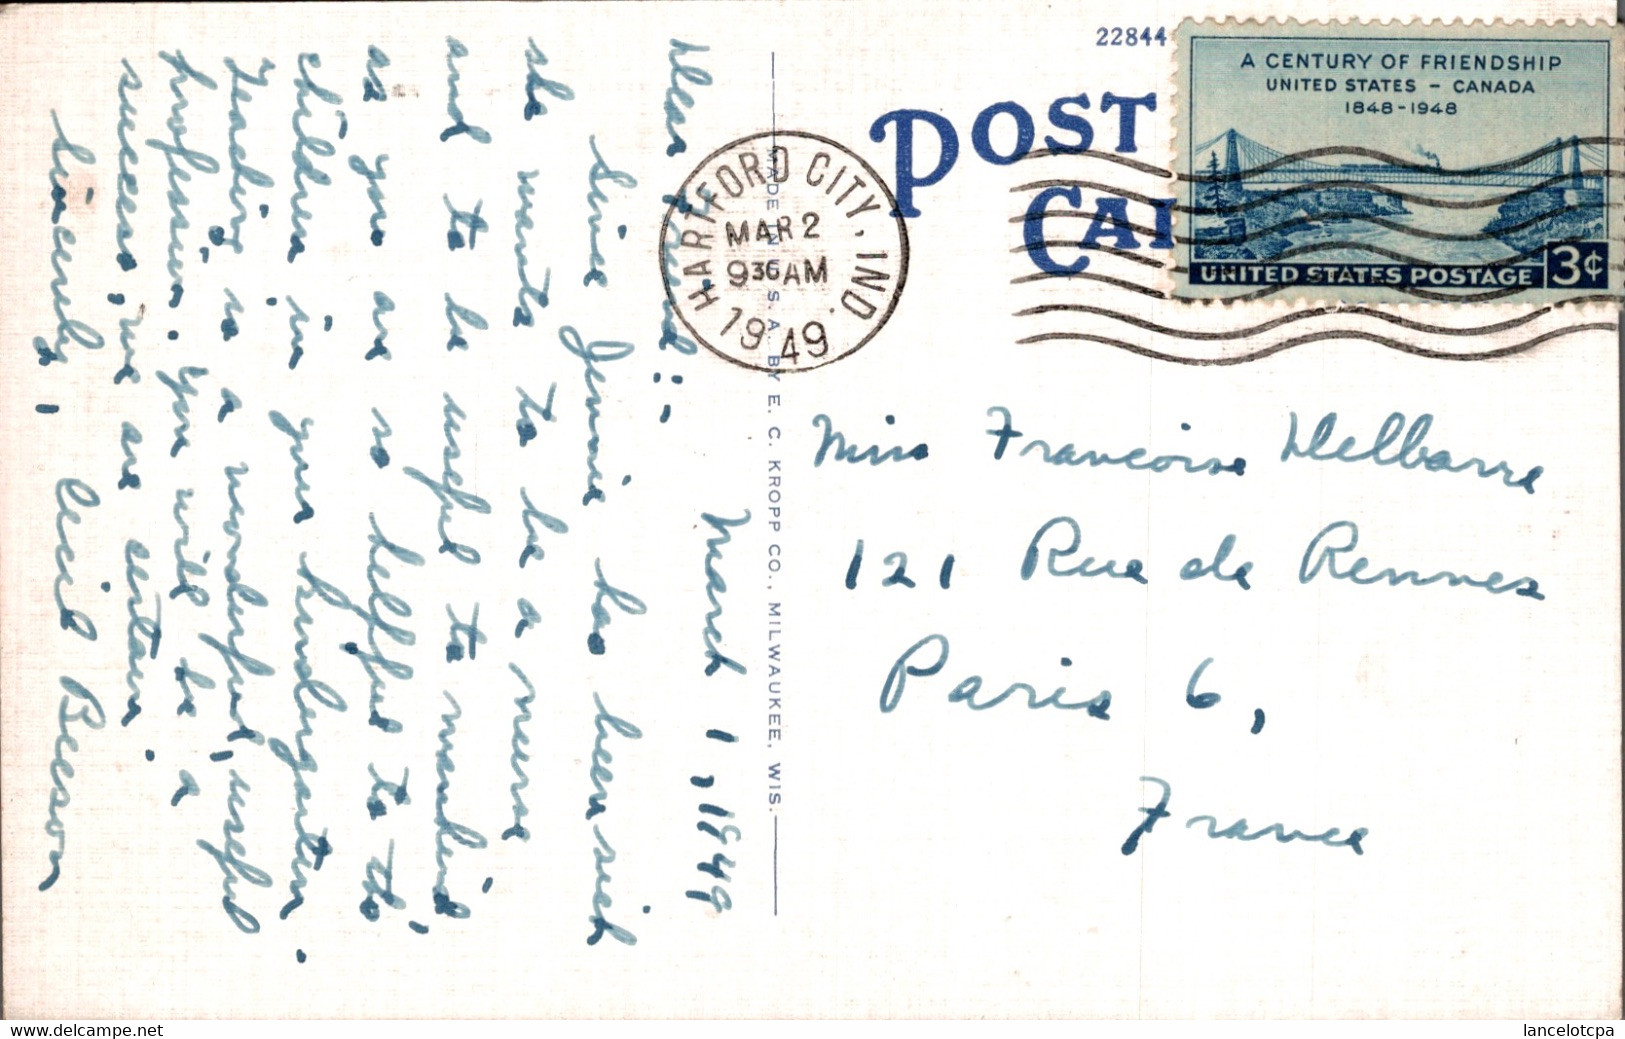 March 1, 1949
Dear Friend:-
Since Jennie has been sick
she wants to be a nurse
and to be useful to mankind
as you are so helpful to the
children in your kindergarten.
Teaching is a wonderful, useful
profession. You will be a
success, we are certain.
Sincerely, Cecil Beeson
22844
POST
CAR
MADE IN U.S.A. BY E. C. KROPP CO., MILWAUKEE, WIS.
HARTFORD CITY, IND.
MAR 2
9 30 AM
1949
A CENTURY OF FRIENDSHIP
UNITED STATES - CANADA
1848-1948
UNITED STATES POSTAGE 3¢
Miss Francoise Delbarre
121 Rue de Rennes
Paris 6,
France
lancelotcpa